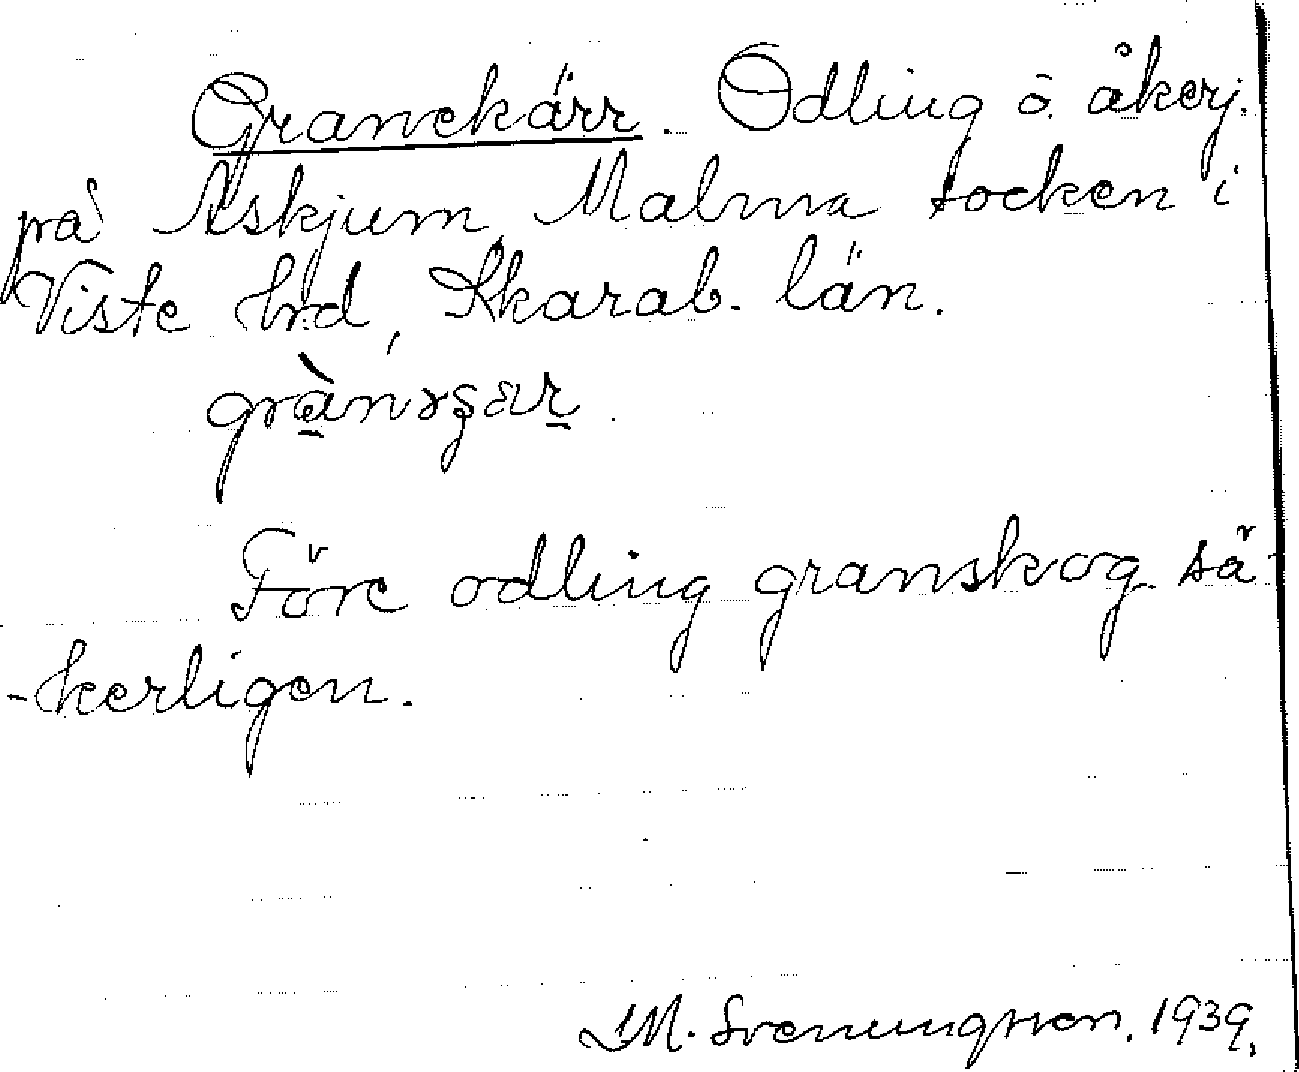 Granekärr. Odling å åkerj.
på Askjum, Malma socken i
Viste hrd, Skarab. län.
Före odling granskog sä-
-kerligen.
M. Svenungsson. 1939.